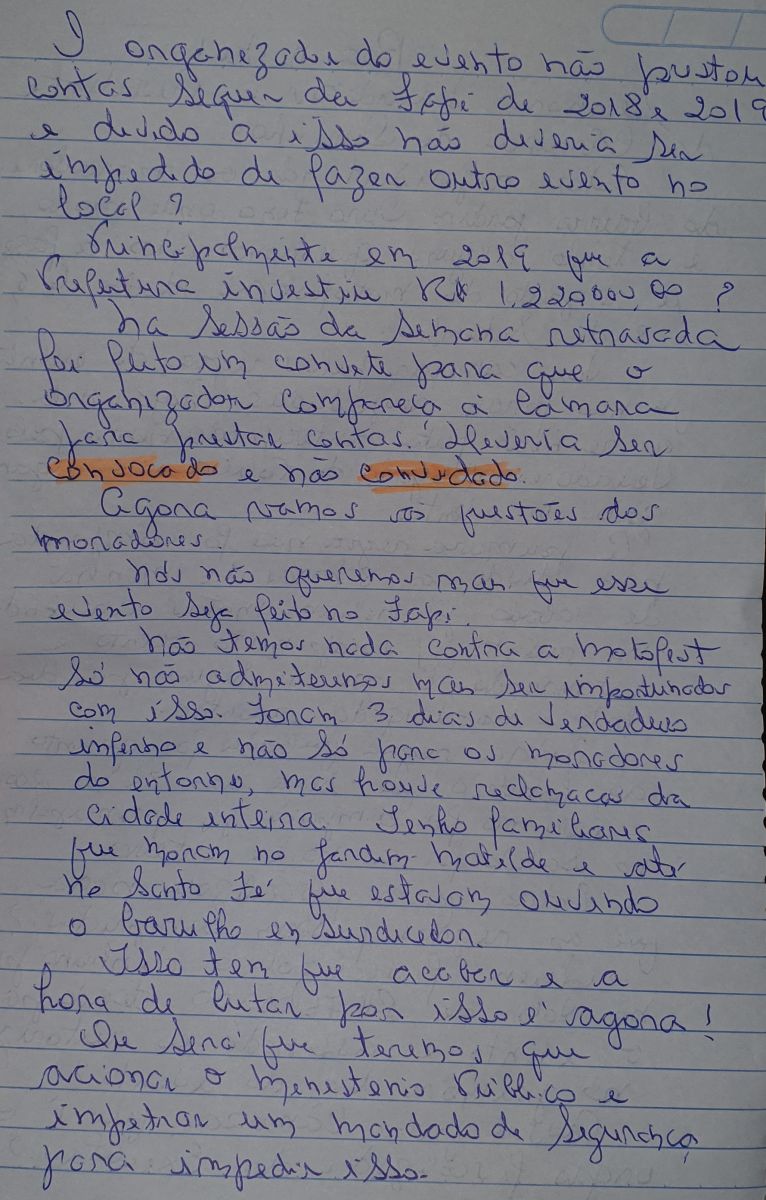 O organizador do evento não prestou
contas sequer da Fapi de 2018 e 2019
e devido a isso não deveria ser
impedido de fazer outro evento no
local?
Principalmente em 2019 que a
Prefeitura investiu R$ 1.220000,00?
Na sessão da semana retrasada
foi feito um convite para que o
organizador compareça à Câmara
para prestar contas. Deveria ser
convocado e não convidado.
Agora vamos às questões dos
moradores.
Nós não queremos mais que esse
evento seja feito no Fapi.
Não temos nada contra a motofest
Só não admitiremos mais ser importunados
com isso. Foram 3 dias de verdadeiro
inferno e não só para os moradores
do entorno, mas houve reclamacas da
cidade inteira. Tenho familiares
que moram no Jardim Matilde e até
no Santo Fé que estavam ouvindo
o barulho ensurdecedor.
Isso tem que acabar e a
hora de lutar por isso é agora!
Ou será que teremos que
acionar o Ministerio Público e
impetrar um mandado de segurança
para impedir isso.